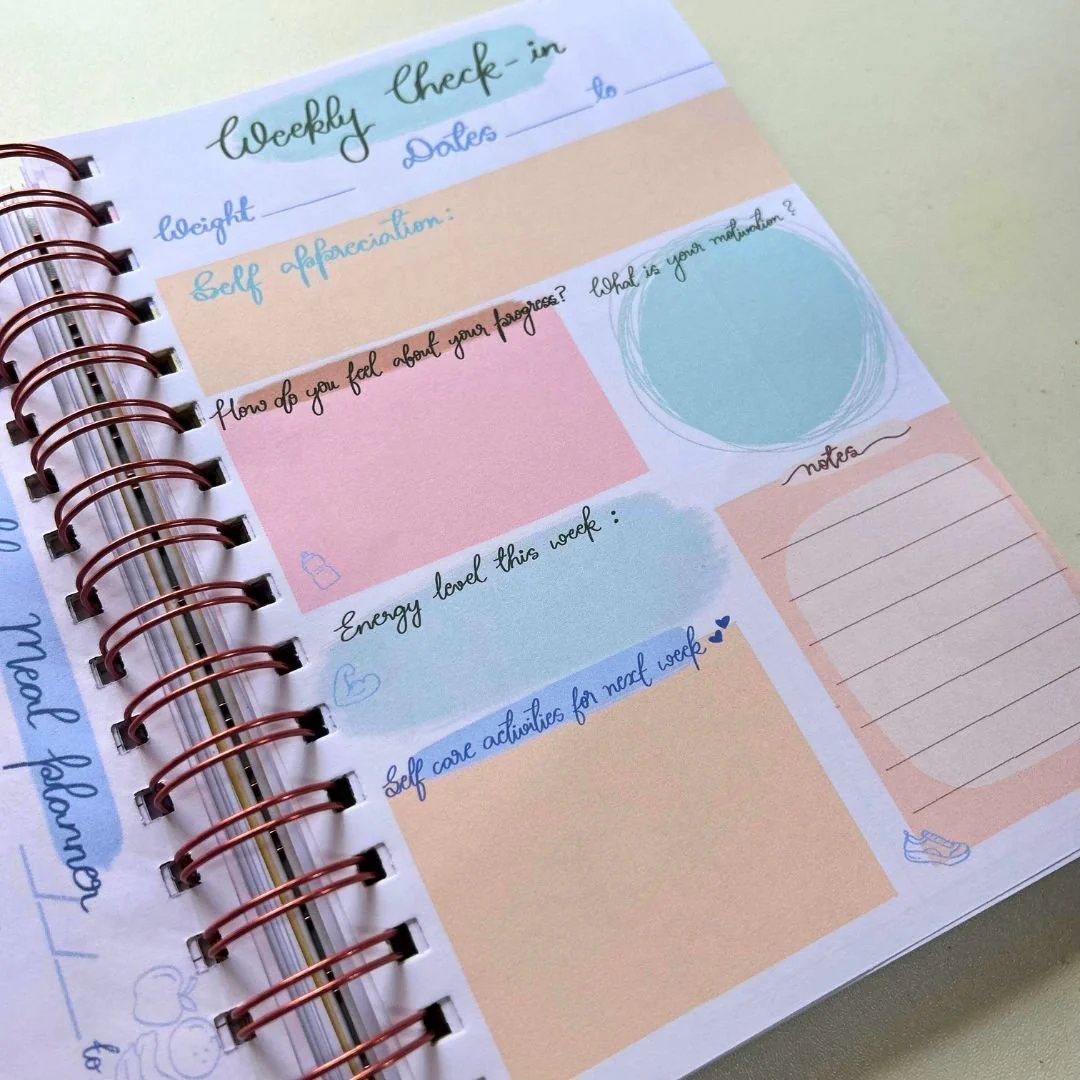 Weekly Check-in
Dates ______ to ______
Weight ______
Self appreciation:
How do you feel about your progress?
What is your motivation?
notes
Energy level this week :
Self care activities for next week
Meal planner
to